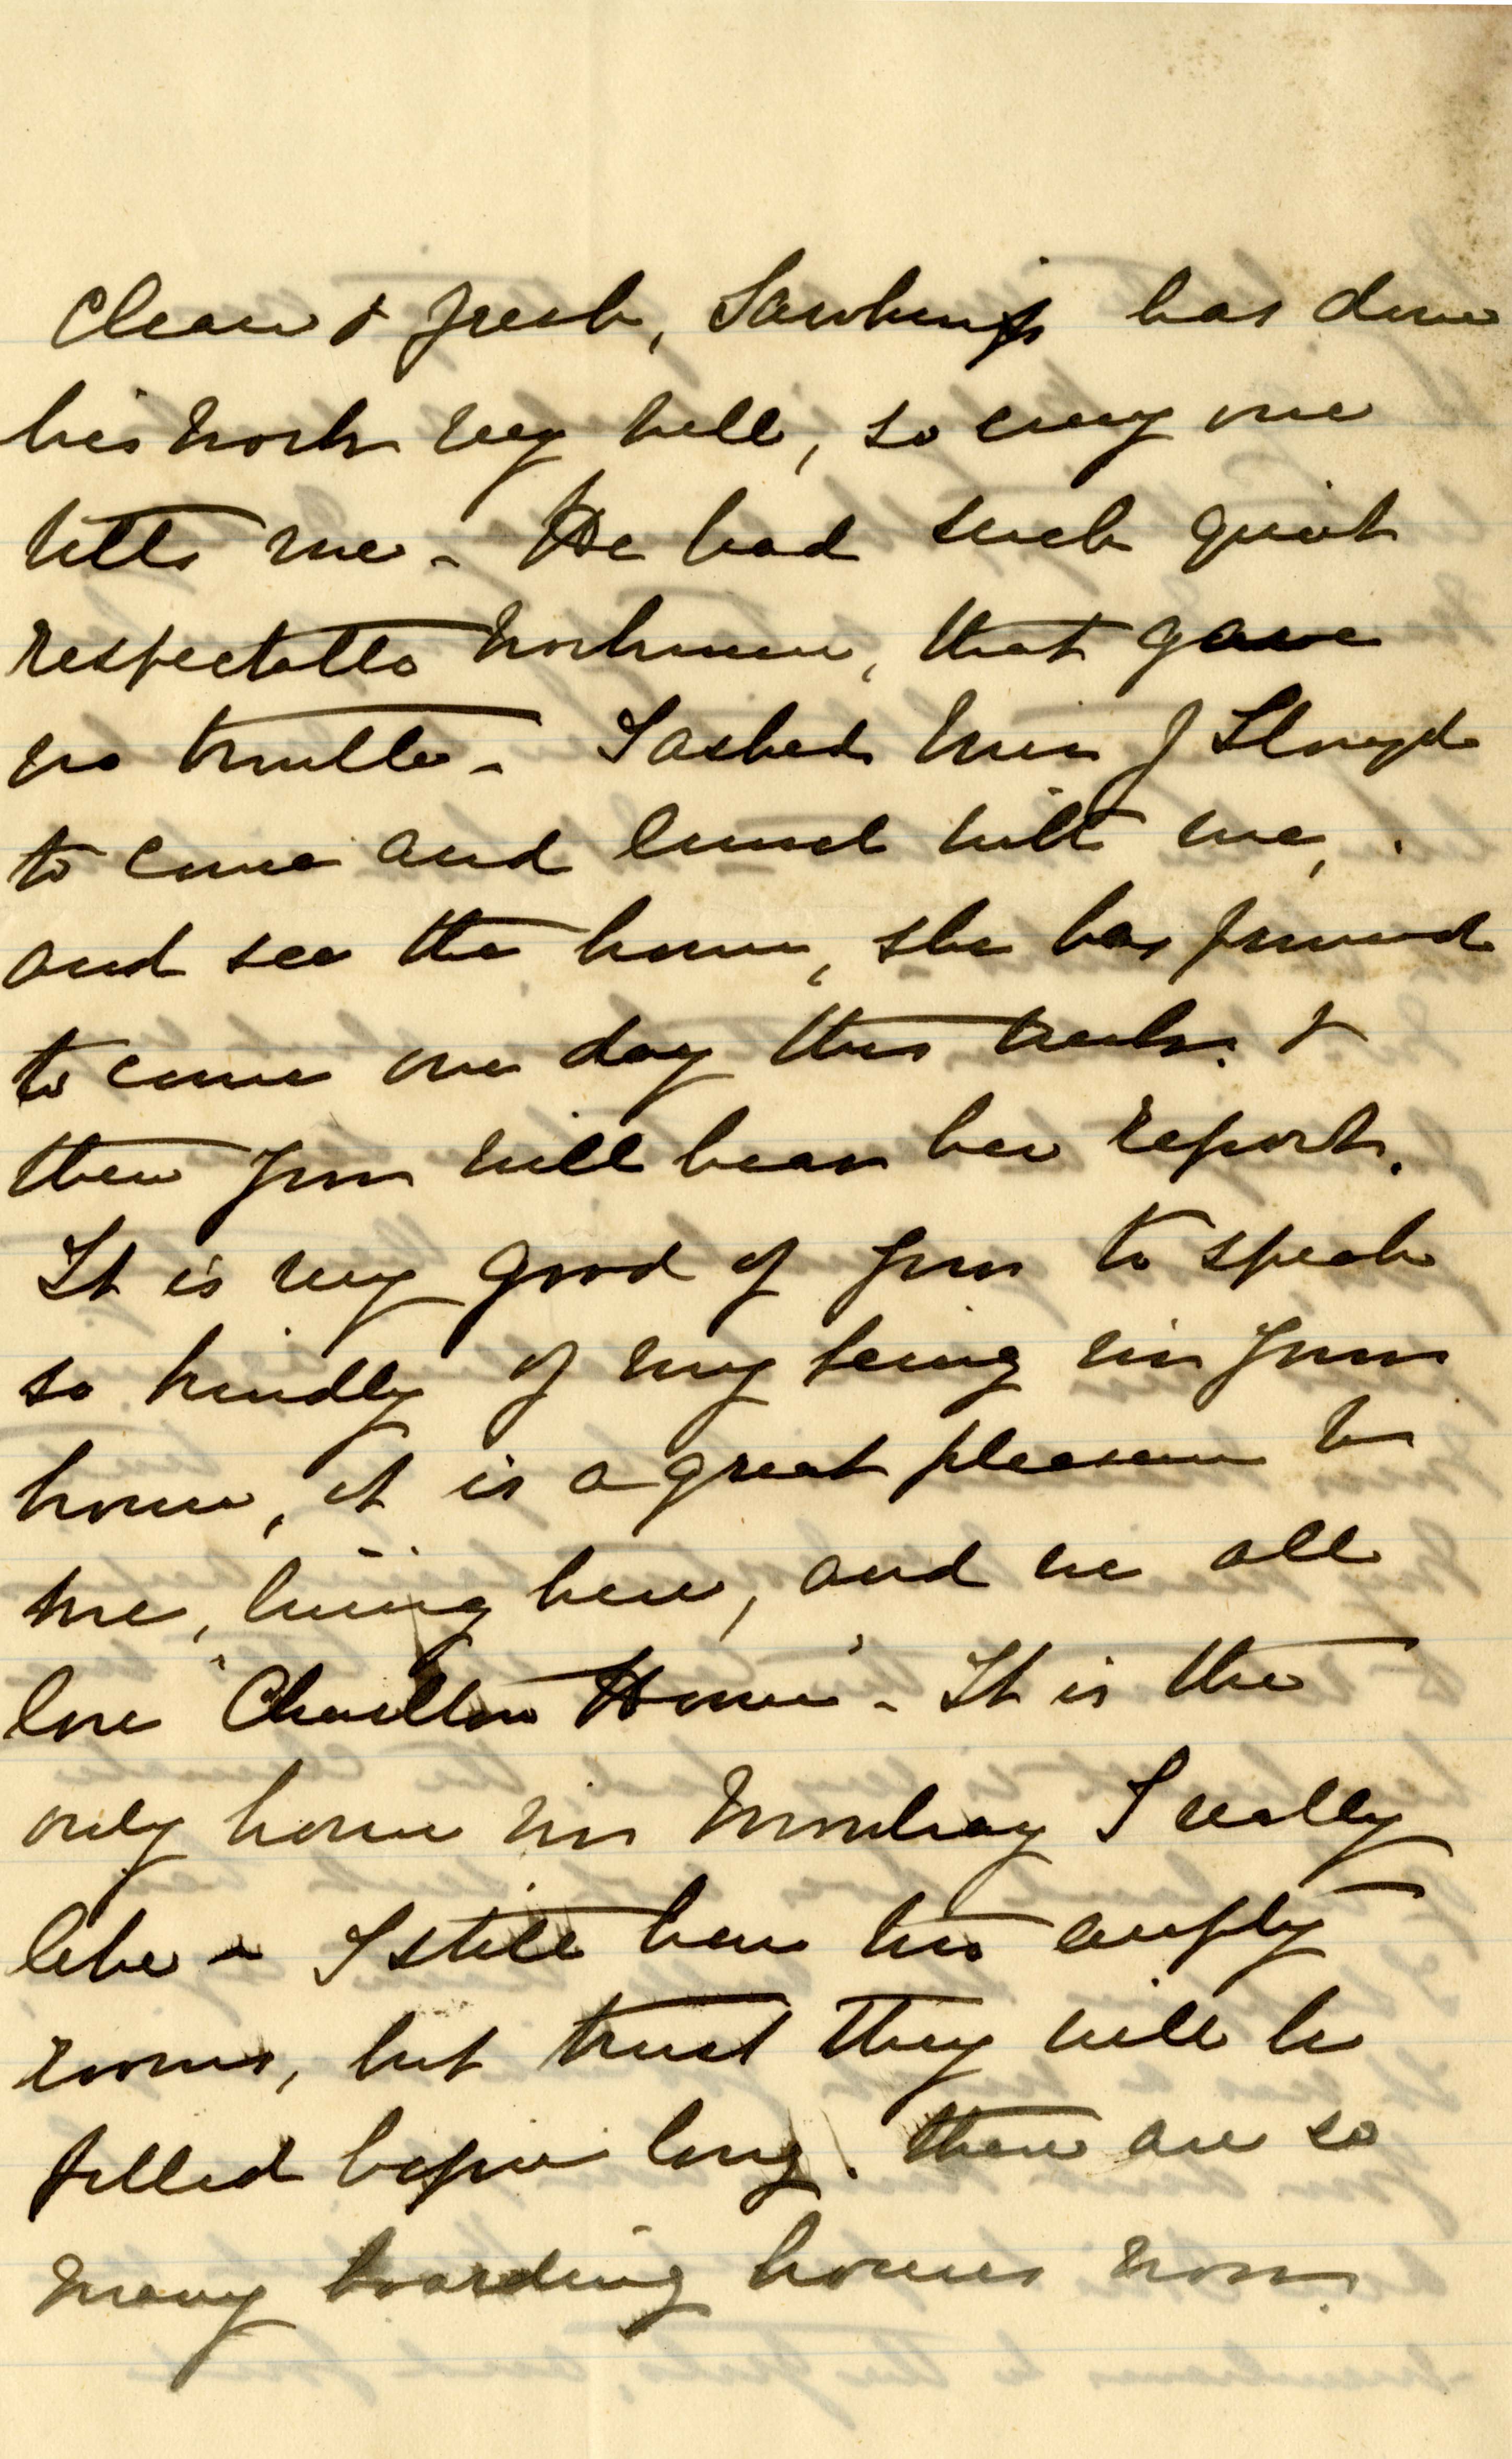 Clean & fresh, Sawkins has done
his work very well, so every one
tells me - He had such quiet
respectable workmen, that gave
no trouble - I asked Miss J Lloyd
to come and lunch with me,
and see the house, she has promised
to come one day this week. &
then you will hear her report.
It is very good of you to speak
so kindly of my being in your
house, it is a great pleasure to
me, living here, and we all
love "Charlton House" - It is the
only house in Mowbray I really
like - I still have two empty
rooms, but trust they will be
filled before long. there are so
many boarding houses now.